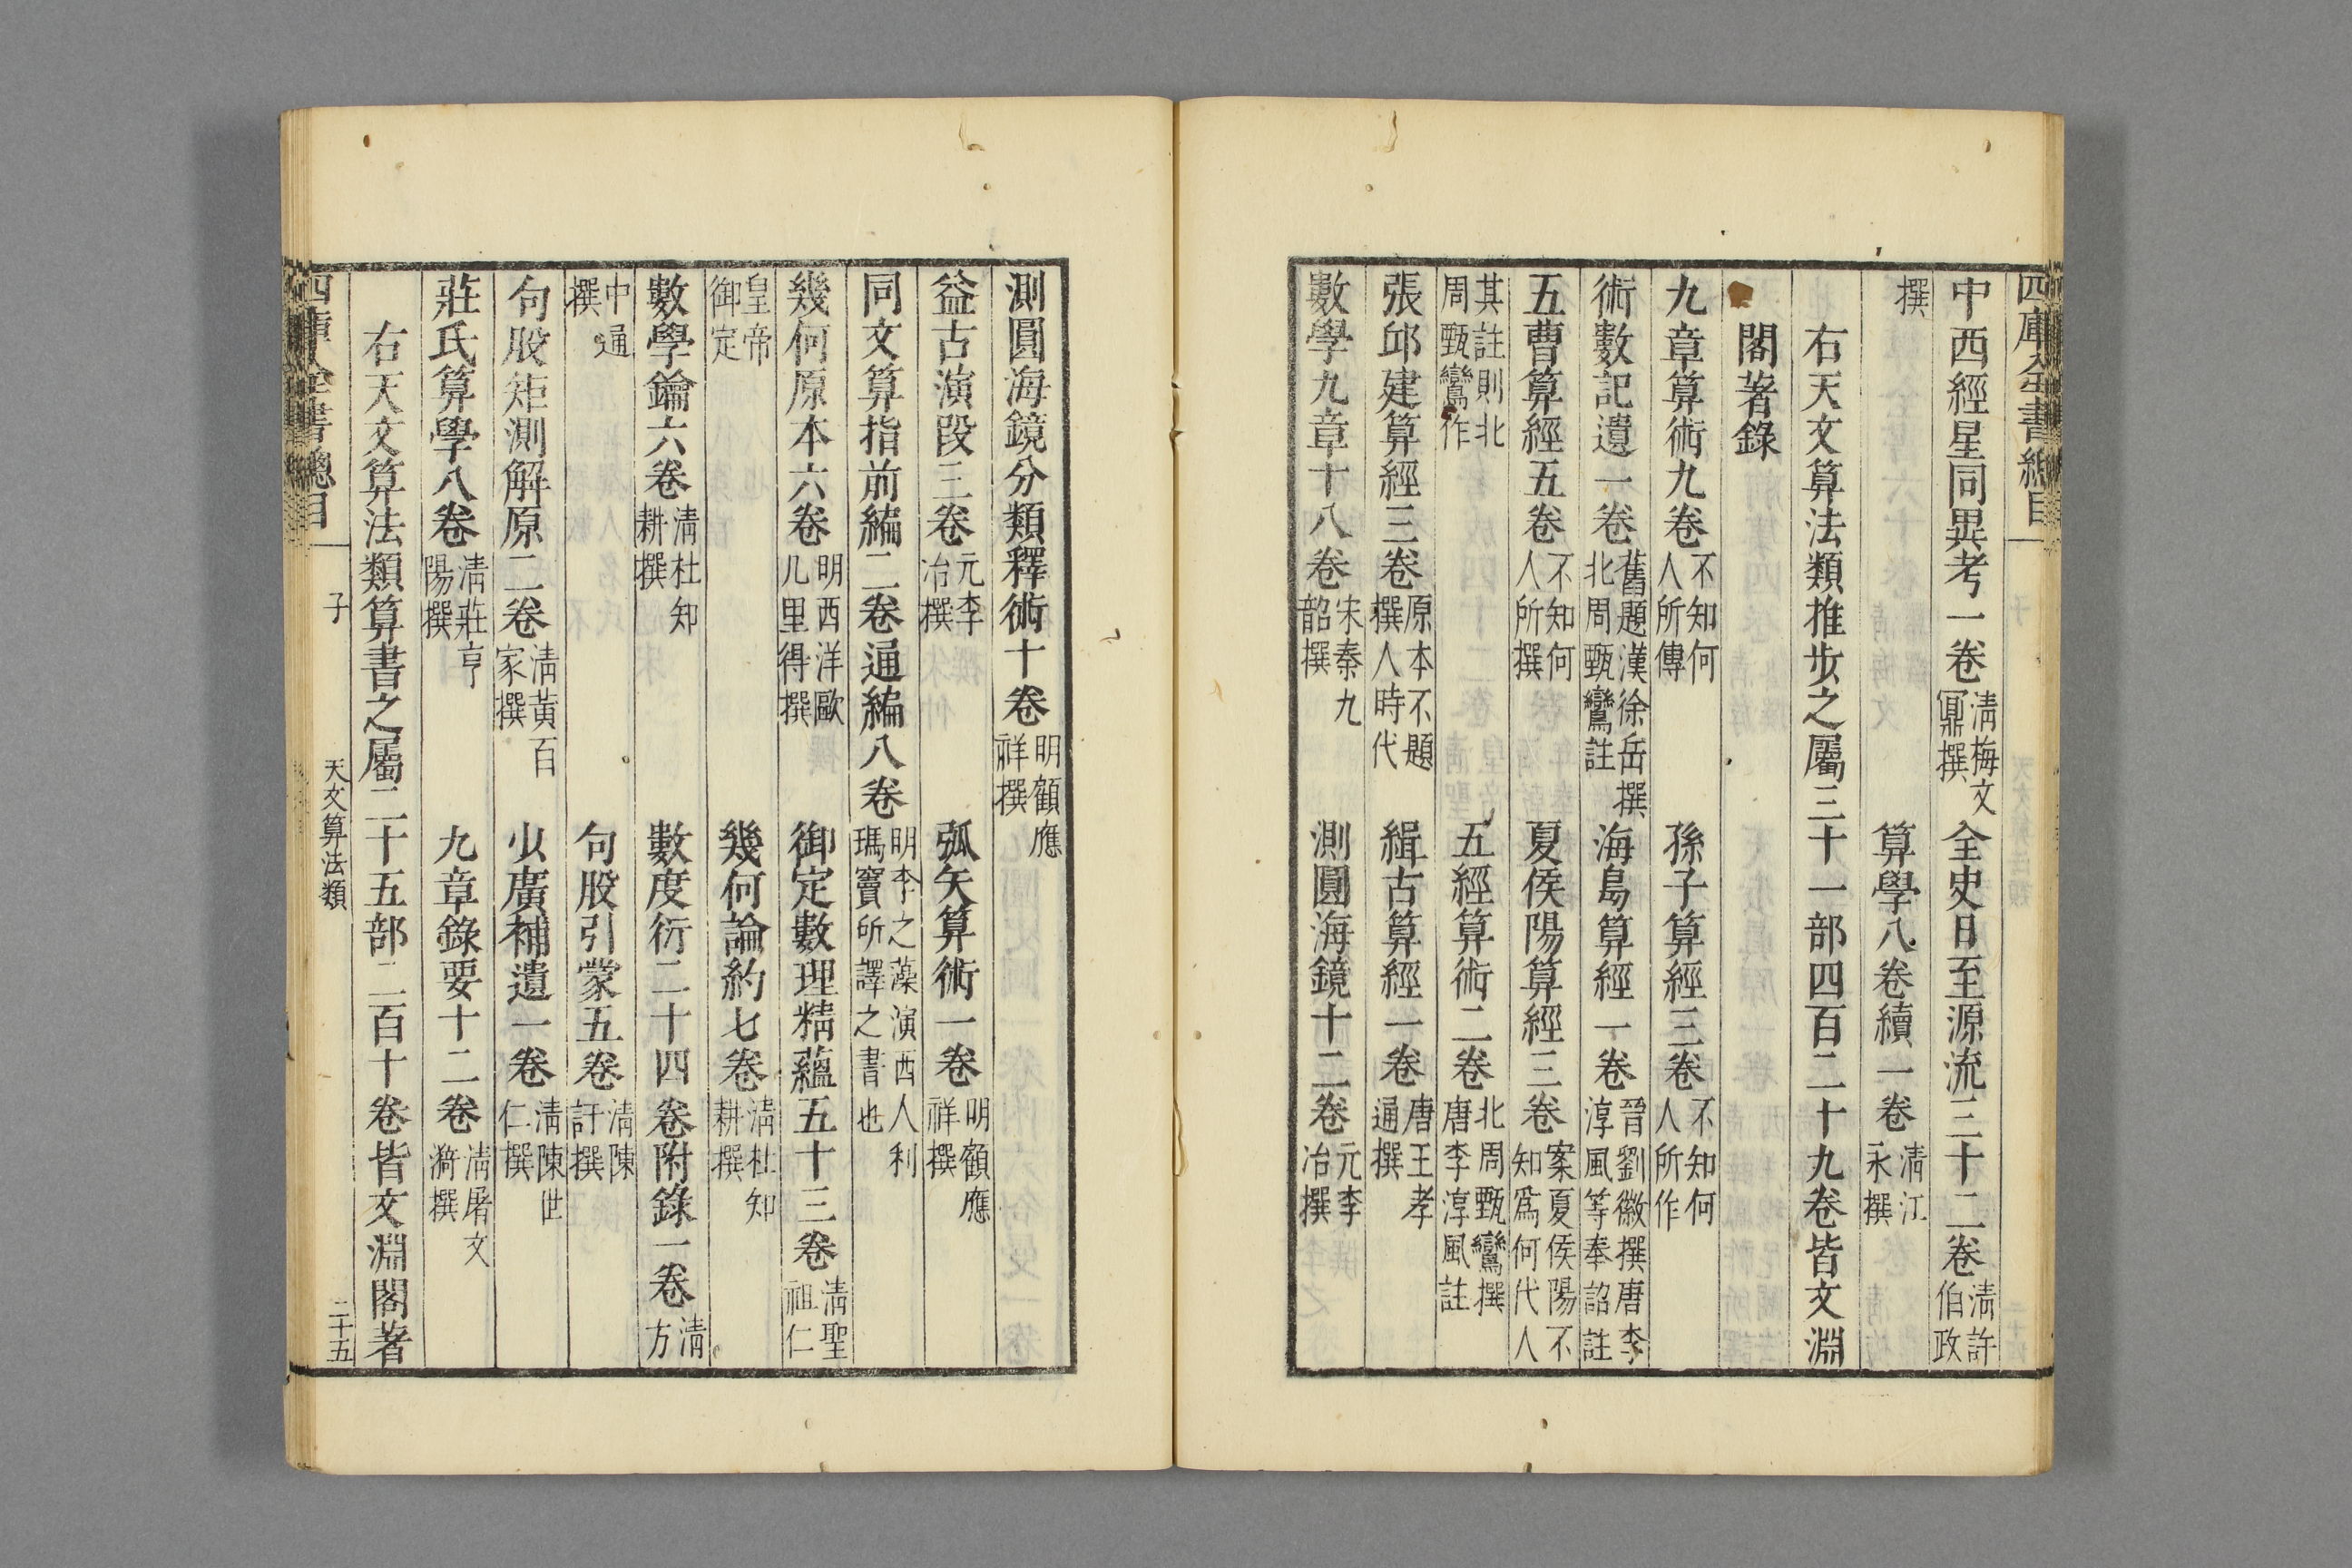 四庫全書總目
中西經星同異考一卷 清梅文鼏撰 全史日至源流三十二卷 清許伯政
撰 算學八卷續一卷 清江永撰
右天文算法類推步之屬三十一部四百二十九卷皆文淵
閣著錄
九章算術九卷 不知何人所傳 孫子算經三卷 不知何人所作
術數記遺一卷 舊題漢徐岳撰北周甄鸞註 海島算經一卷 晉劉徽撰唐李淳風等奉詔註
五曹算經五卷 不知何人所撰 夏侯陽算經三卷 案夏侯陽不知為何代人
其註則北周甄鸞作 五經算術二卷 北周甄鸞撰唐李淳風註
張邱建算經三卷 原本不題撰人時代 緝古算經一卷 唐王孝通撰
數學九章十八卷 宋秦九韶撰 測圓海鏡十二卷 元李冶撰
測圓海鏡分類釋術十卷 明顧應祥撰
益古演段三卷 元李冶撰 弧矢算術一卷 明顧應祥撰
同文算指前編二卷通編八卷 明李之藻演西人利瑪竇所譯之書也
幾何原本六卷 明西洋歐几里得撰 御定數理精蘊五十三卷 清聖祖仁
皇帝御定 幾何論約七卷 清杜知耕撰
數學鑰六卷 清杜知耕撰 數度衍二十四卷附錄一卷 清方
中通撰 句股引蒙五卷 清陳訏撰
句股矩測解原二卷 清黃百家撰 少廣補遺一卷 清陳世仁撰
莊氏算學八卷 清莊亨陽撰 九章錄要十二卷 清屠文漪撰
右天文算法類算書之屬二十五部二百十卷皆文淵閣著
四庫全書總目 子 天文算法類 二十五